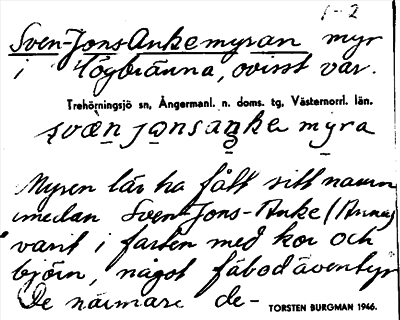 1-2
Sven-Jons-Ankemyran myr
i Högbränna, ovisst var.
Trehörningsjö sn, Ångermanl. n. doms. tg. Västernorrl. län.
svæn jonsaŋka myra
Myren lär ha fått sitt namn
medan Sven-Jons-Anke (Anna)
varit i farten med kor och
björn, något fäbodäventyr
De närmare de-
TORSTEN BURGMAN 1946.